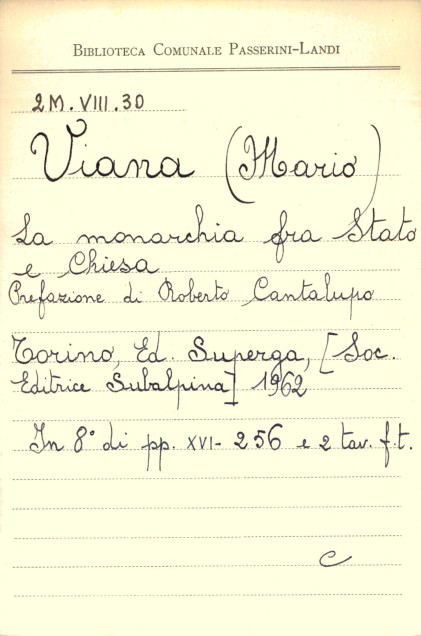 BIBLIOTECA COMUNALE PASSERINI-LANDI
2M.VIII.30
Viana (Mario)
La monarchia fra Stato
e Chiesa
Prefazione di Roberto Cantalupo
Torino, Ed. Superga, [Soc.
Editrice Subalpina] 1962
In 8° di pp. XVI-256 e 2 tav. f.t.
C